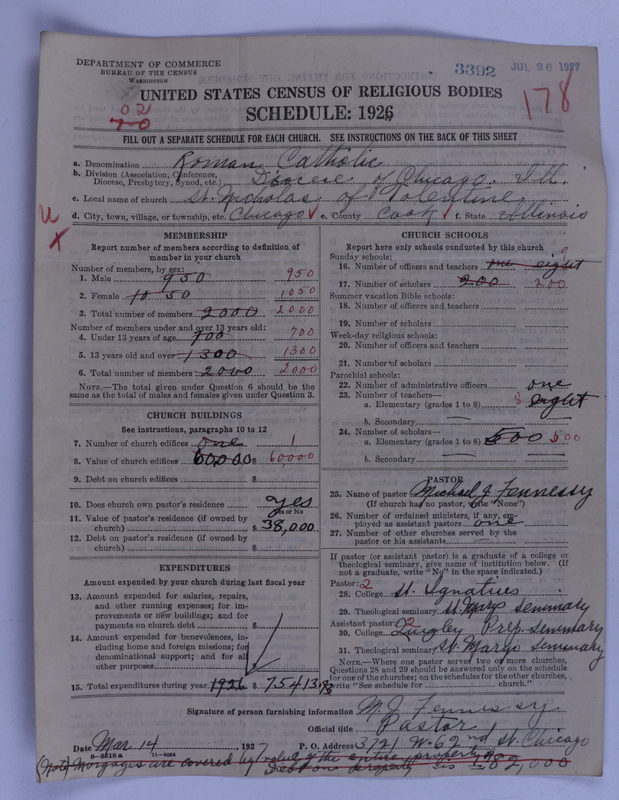 DEPARTMENT OF COMMERCE
BUREAU OF THE CENSUS
WASHINGTON
3392 JUL 26 1927
UNITED STATES CENSUS OF RELIGIOUS BODIES
SCHEDULE: 1926
02
70
178
FILL OUT A SEPARATE SCHEDULE FOR EACH CHURCH. SEE INSTRUCTIONS ON THE BACK OF THIS SHEET
a. Denomination Roman Catholic
b. Division (Association, Conference,
Diocese, Presbytery, Synod, etc.) Diocese of Chicago. Ill.
c. Local name of church St. Nicholas of Tolentine
d. City, town, village, or township, etc. Chicago e. County Cook f. State Illinois
MEMBERSHIP
Report number of members according to definition of
member in your church
Number of members, by sex:
1. Male 950 950
2. Female 1050 1050
3. Total number of members 2000 2000
Number of members under and over 13 years old:
4. Under 13 years of age 700 700
5. 13 years old and over 1300 1300
6. Total number of members 2000 2000
NOTE.—The total given under Question 6 should be the
same as the total of males and females given under Question 3.
CHURCH BUILDINGS
See instructions, paragraphs 10 to 12
7. Number of church edifices One 1
8. Value of church edifices 60,000 $ 60,000
9. Debt on church edifices $
10. Does church own pastor's residence yes
Yes or No
11. Value of pastor's residence (if owned by
church) $ 38,000
12. Debt on pastor's residence (if owned by
church) $
EXPENDITURES
Amount expended by your church during last fiscal year
13. Amount expended for salaries, repairs,
and other running expenses; for im-
provements or new buildings; and for
payments on church debt $
14. Amount expended for benevolences, in-
cluding home and foreign missions; for
denominational support; and for all
other purposes $
15. Total expenditures during year 1926 $ 75413.93
CHURCH SCHOOLS
Report here only schools conducted by this church
Sunday schools:
16. Number of officers and teachers one eight 9
17. Number of scholars 200 200
Summer vacation Bible schools:
18. Number of officers and teachers
19. Number of scholars
Week-day religious schools:
20. Number of officers and teachers
21. Number of scholars
Parochial schools:
22. Number of administrative officers one
23. Number of teachers—
a. Elementary (grades 1 to 8) 8 eight
b. Secondary —
24. Number of scholars—
a. Elementary (grades 1 to 8) 500 500
b. Secondary —
PASTOR
25. Name of pastor Michael J Fennessy
(If church has no pastor, write "None")
26. Number of ordained ministers, if any, em-
ployed as assistant pastors one
27. Number of other churches served by the
pastor or his assistants
If pastor (or assistant pastor) is a graduate of a college or
theological seminary, give name of institution below. (If
not a graduate, write "No" in the space indicated.)
Pastor: 2
28. College St. Ignatius
29. Theological seminary St Marys Seminary
Assistant pastor: 2
30. College Quigley Prep. Seminary
31. Theological seminary St. Marys Seminary
NOTE.—Where one pastor serves two or more churches,
Questions 28 and 29 should be answered only on the schedule
for one of the churches; on the schedules for the other churches,
write "See schedule for church."
Signature of person furnishing information M. J. Fennessy
Official title Pastor
Date Mar 14, 1927 P. O. Address 3721 W. 62nd St. Chicago
8—5518a 11—9064
(Note) Morgages are covered by value of the entire property
Debt on property is $182,000